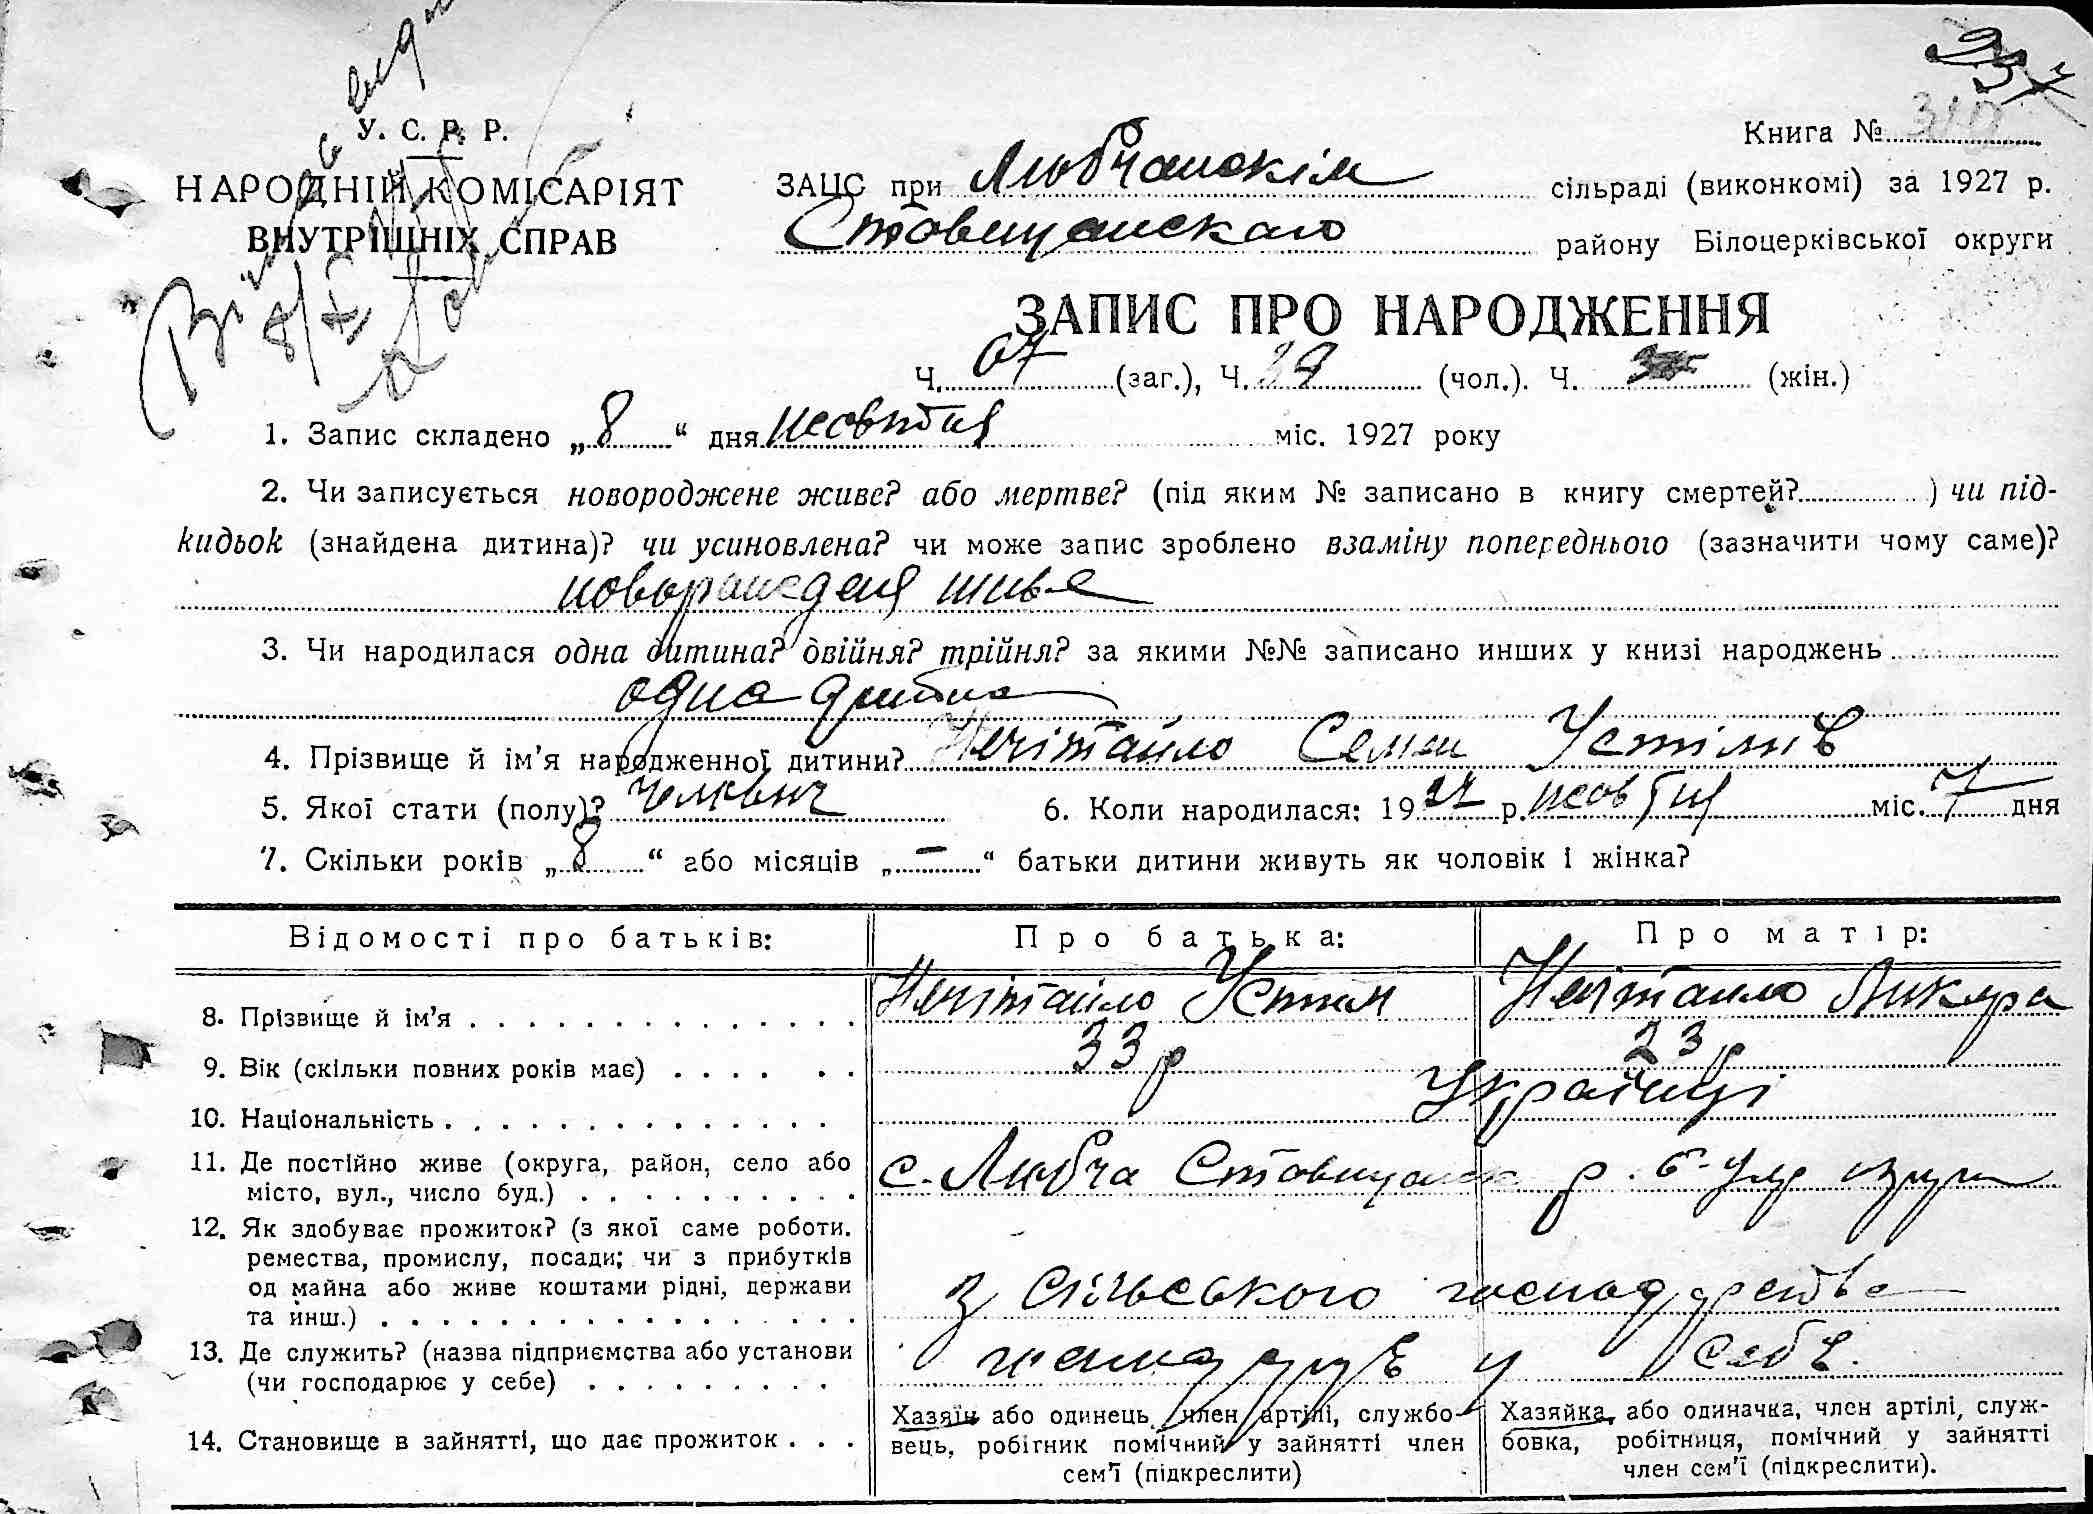 У. С. Р. Р.
НАРОДНІЙ КОМІСАРІЯТ
ВНУТРІШНІХ СПРАВ
Книга №
ЗАЦС при Любчанскім сільраді (виконкомі) за 1927 р.
Ставищанскаго району Білоцерківської округи
ЗАПИС ПРО НАРОДЖЕННЯ
Ч. 67 (заг.), Ч. 39 (чол.). Ч. (жін.)
1. Запис складено „8“ дня жовтня міс. 1927 року
2. Чи записується новороджене живе? або мертве? (під яким № записано в книгу смертей? ) чи під-
кидьок (знайдена дитина)? чи усиновлена? чи може запис зроблено взаміну попереднього (зазначити чому саме)?
живе
3. Чи народилася одна дитина? двійня? трійня? за якими №№ записано инших у книзі народжень
одна дитина
4. Прізвище й ім'я народженної дитини? Нечітайло Семен Устімів
5. Якої стати (полу)? 6. Коли народилася: 1927 р. жовтня міс. 7 дня
7. Скільки років „8“ або місяців „—“ батьки дитини живуть як чоловік і жінка?
Відомості про батьків: Про батька: Про матір:
8. Прізвище й ім'я Нечітайло Устим Нечітайло Ликера
9. Вік (скільки повних років має) 33 р 23 р
10. Національність Українці
11. Де постійно живе (округа, район, село або
місто, вул., число буд.) с. Любча Ставищанск р. округи
12. Як здобуває прожиток? (з якої саме роботи.
ремества, промислу, посади; чи з прибутків
од майна або живе коштами рідні, держави
та инш.) з сільського господарства
13. Де служить? (назва підприємства або установи
(чи господарює у себе) у себе.
14. Становище в зайнятті, що дає прожиток
Хазяїн або одинець, член артілі, службо-
вець, робітник помічний у зайнятті член
сем'ї (підкреслити)
Хазяйка, або одиначка, член артілі, служ-
бовка, робітниця, помічний у зайнятті
член сем'ї (підкреслити).